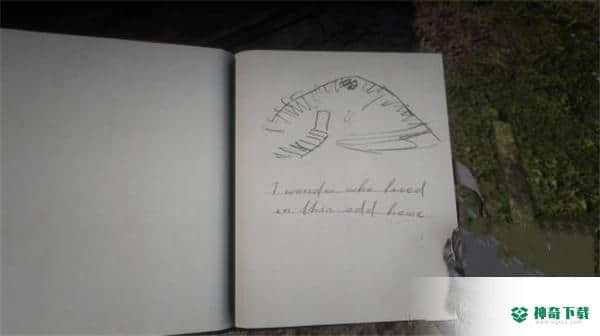 I wonder who lived
in this odd home
神奇下载